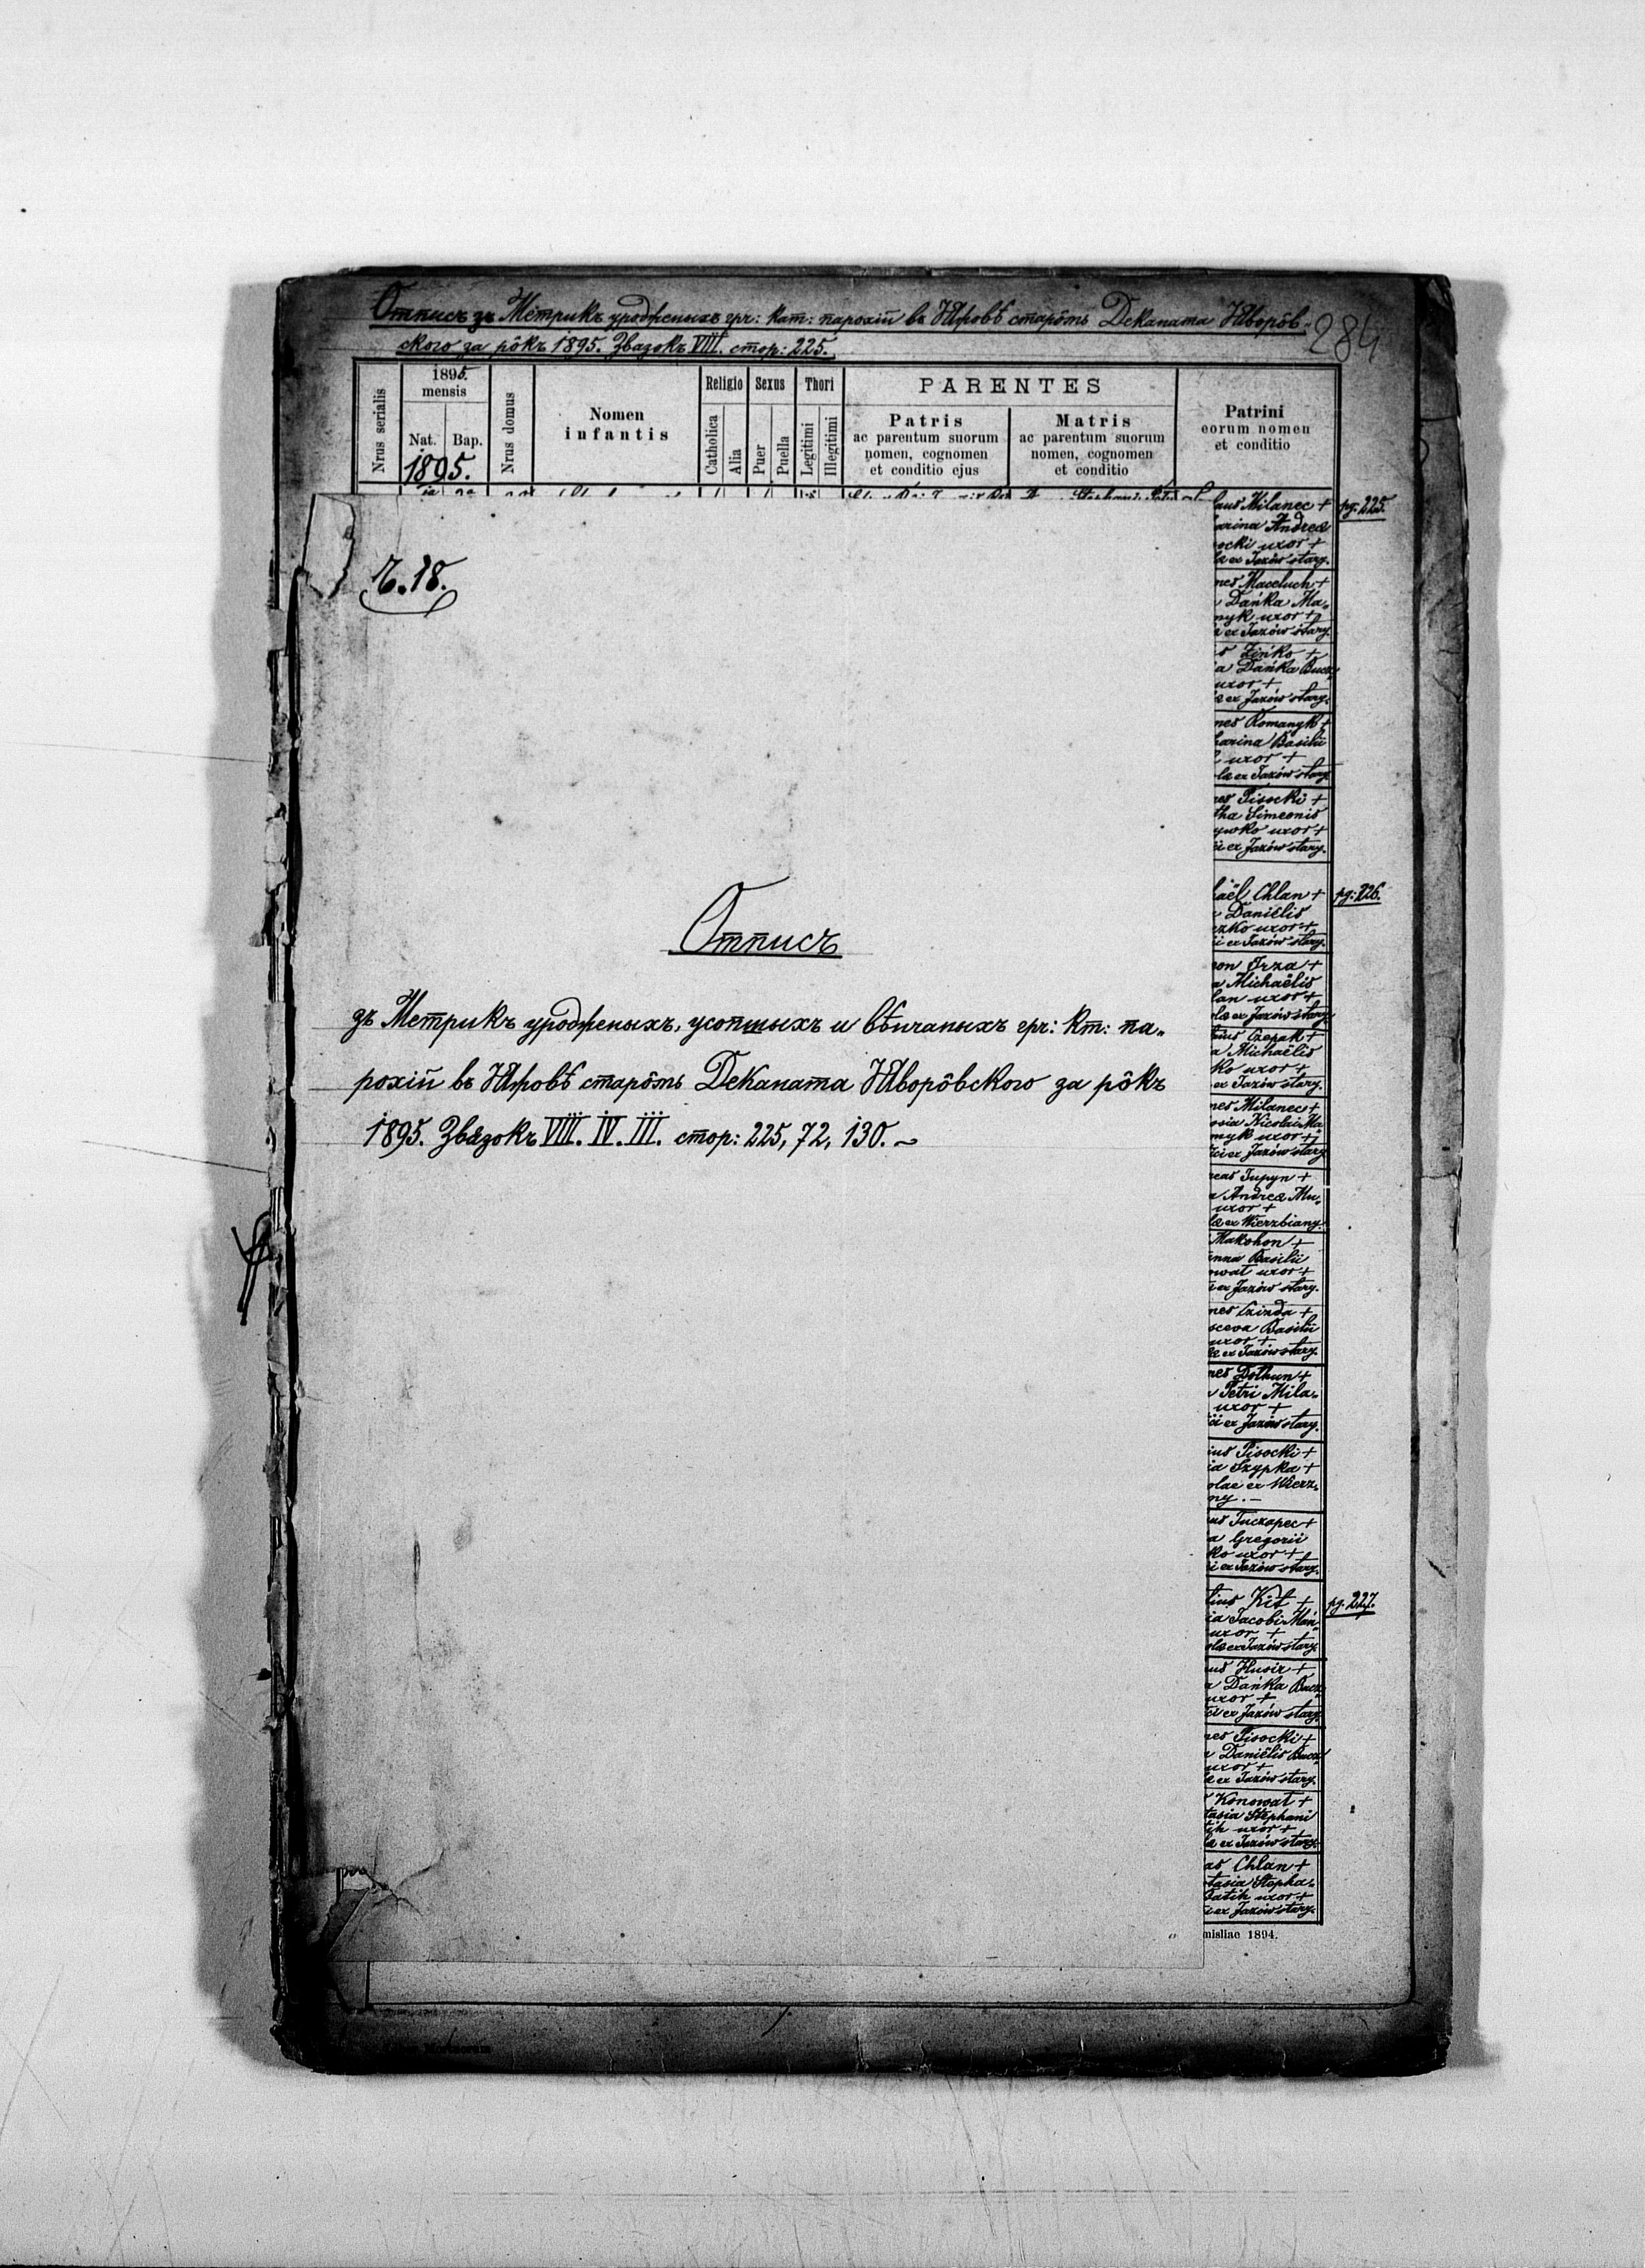 Отписъ зъ Метрикъ уродженыхъ гр: кат: парохіи въ Яжовѣ старôмъ Деканата Яворôв-
284
ского за рôкъ 1895. Звязокъ VIII. стор: 225.
Nrus serialis
1895.
mensis
Nat.
Bap.
1895.
Nrus domus
Nomen
infantis
Religio
Catholica
Alia
Sexus
Puer
Puella
Thori
Legitimi
Illegitimi
PARENTES
Patris
ac parentum suorum
nomen, cognomen
et conditio ejus
Matris
ac parentum suorum
nomen, cognomen
et conditio
Patrini
eorum nomen
et conditio
Ч. 18.
Отписъ
зъ Метрикъ уродженыхъ, усопшыхъ и вѣнчаныхъ гр: кт: па-
рохіи въ Яжовѣ старôмъ Деканата Яворôвского за рôкъ
1895. Звязокъ VIII. IV. III. стор: 225, 72, 130. ~
laus Milanec + pg: 225.
arina Andreæ
ocki uxor +
læ ex Jazów stary.
nes Maceluch +
Dańka Ma-
nyk uxor +
ex Jazów stary.
s Zińko +
a Dańka Bucz
uxor +
læ ex Jazów stary.
nes Romanyk +
harina Basilii
uxor +
læ ex Jazów stary
nes Pisocki +
tha Simeonis
ywko uxor +
ii ex Jazów stary.
haël Chlan + pg: 226.
Daniëlis
czko uxor +
ii ex Jazów stary.
on Irza +
a Michaëlis
lan uxor +
olæ ex Jazów stary
lius Czepak +
a Michaëlis
ko uxor +
ex Jazów stary.
nes Milanec +
osia Nicolai Ma
nyk uxor +
ex Jazów stary
reas Tupyn +
a Andreæ Mu-
uxor +
læ ex Wierzbiany.
Makohon +
anna Basilii
owat uxor +
ex Jazów stary.
nes Czinda +
sceva Basilii
uxor +
læ ex Jazów stary.
nes Dothun +
Petri Mila-
uxor +
ii ex Jazów stary.
ius Pisocki +
ia Szypka +
olae ex Wierz-
ny. –
us Tuczapec +
a Gregorii
ko uxor +
ii ex Jazów stary.
lius Kit + pg: 227.
ia Jacobi Man-
uxor +
olæ ex Jazów stary
us Husir +
a Dańka Bucz
uxor +
ex Jazów stary
nes Pisocki +
a Daniëlis Bucz
uxor +
læ ex Jazów stary.
Konowat +
tasia Stephani
tih uxor +
læ ex Jazów stary.
as Chlan +
tasia Stepha-
Batih uxor +
ex Jazów stary.
misliae 1894.